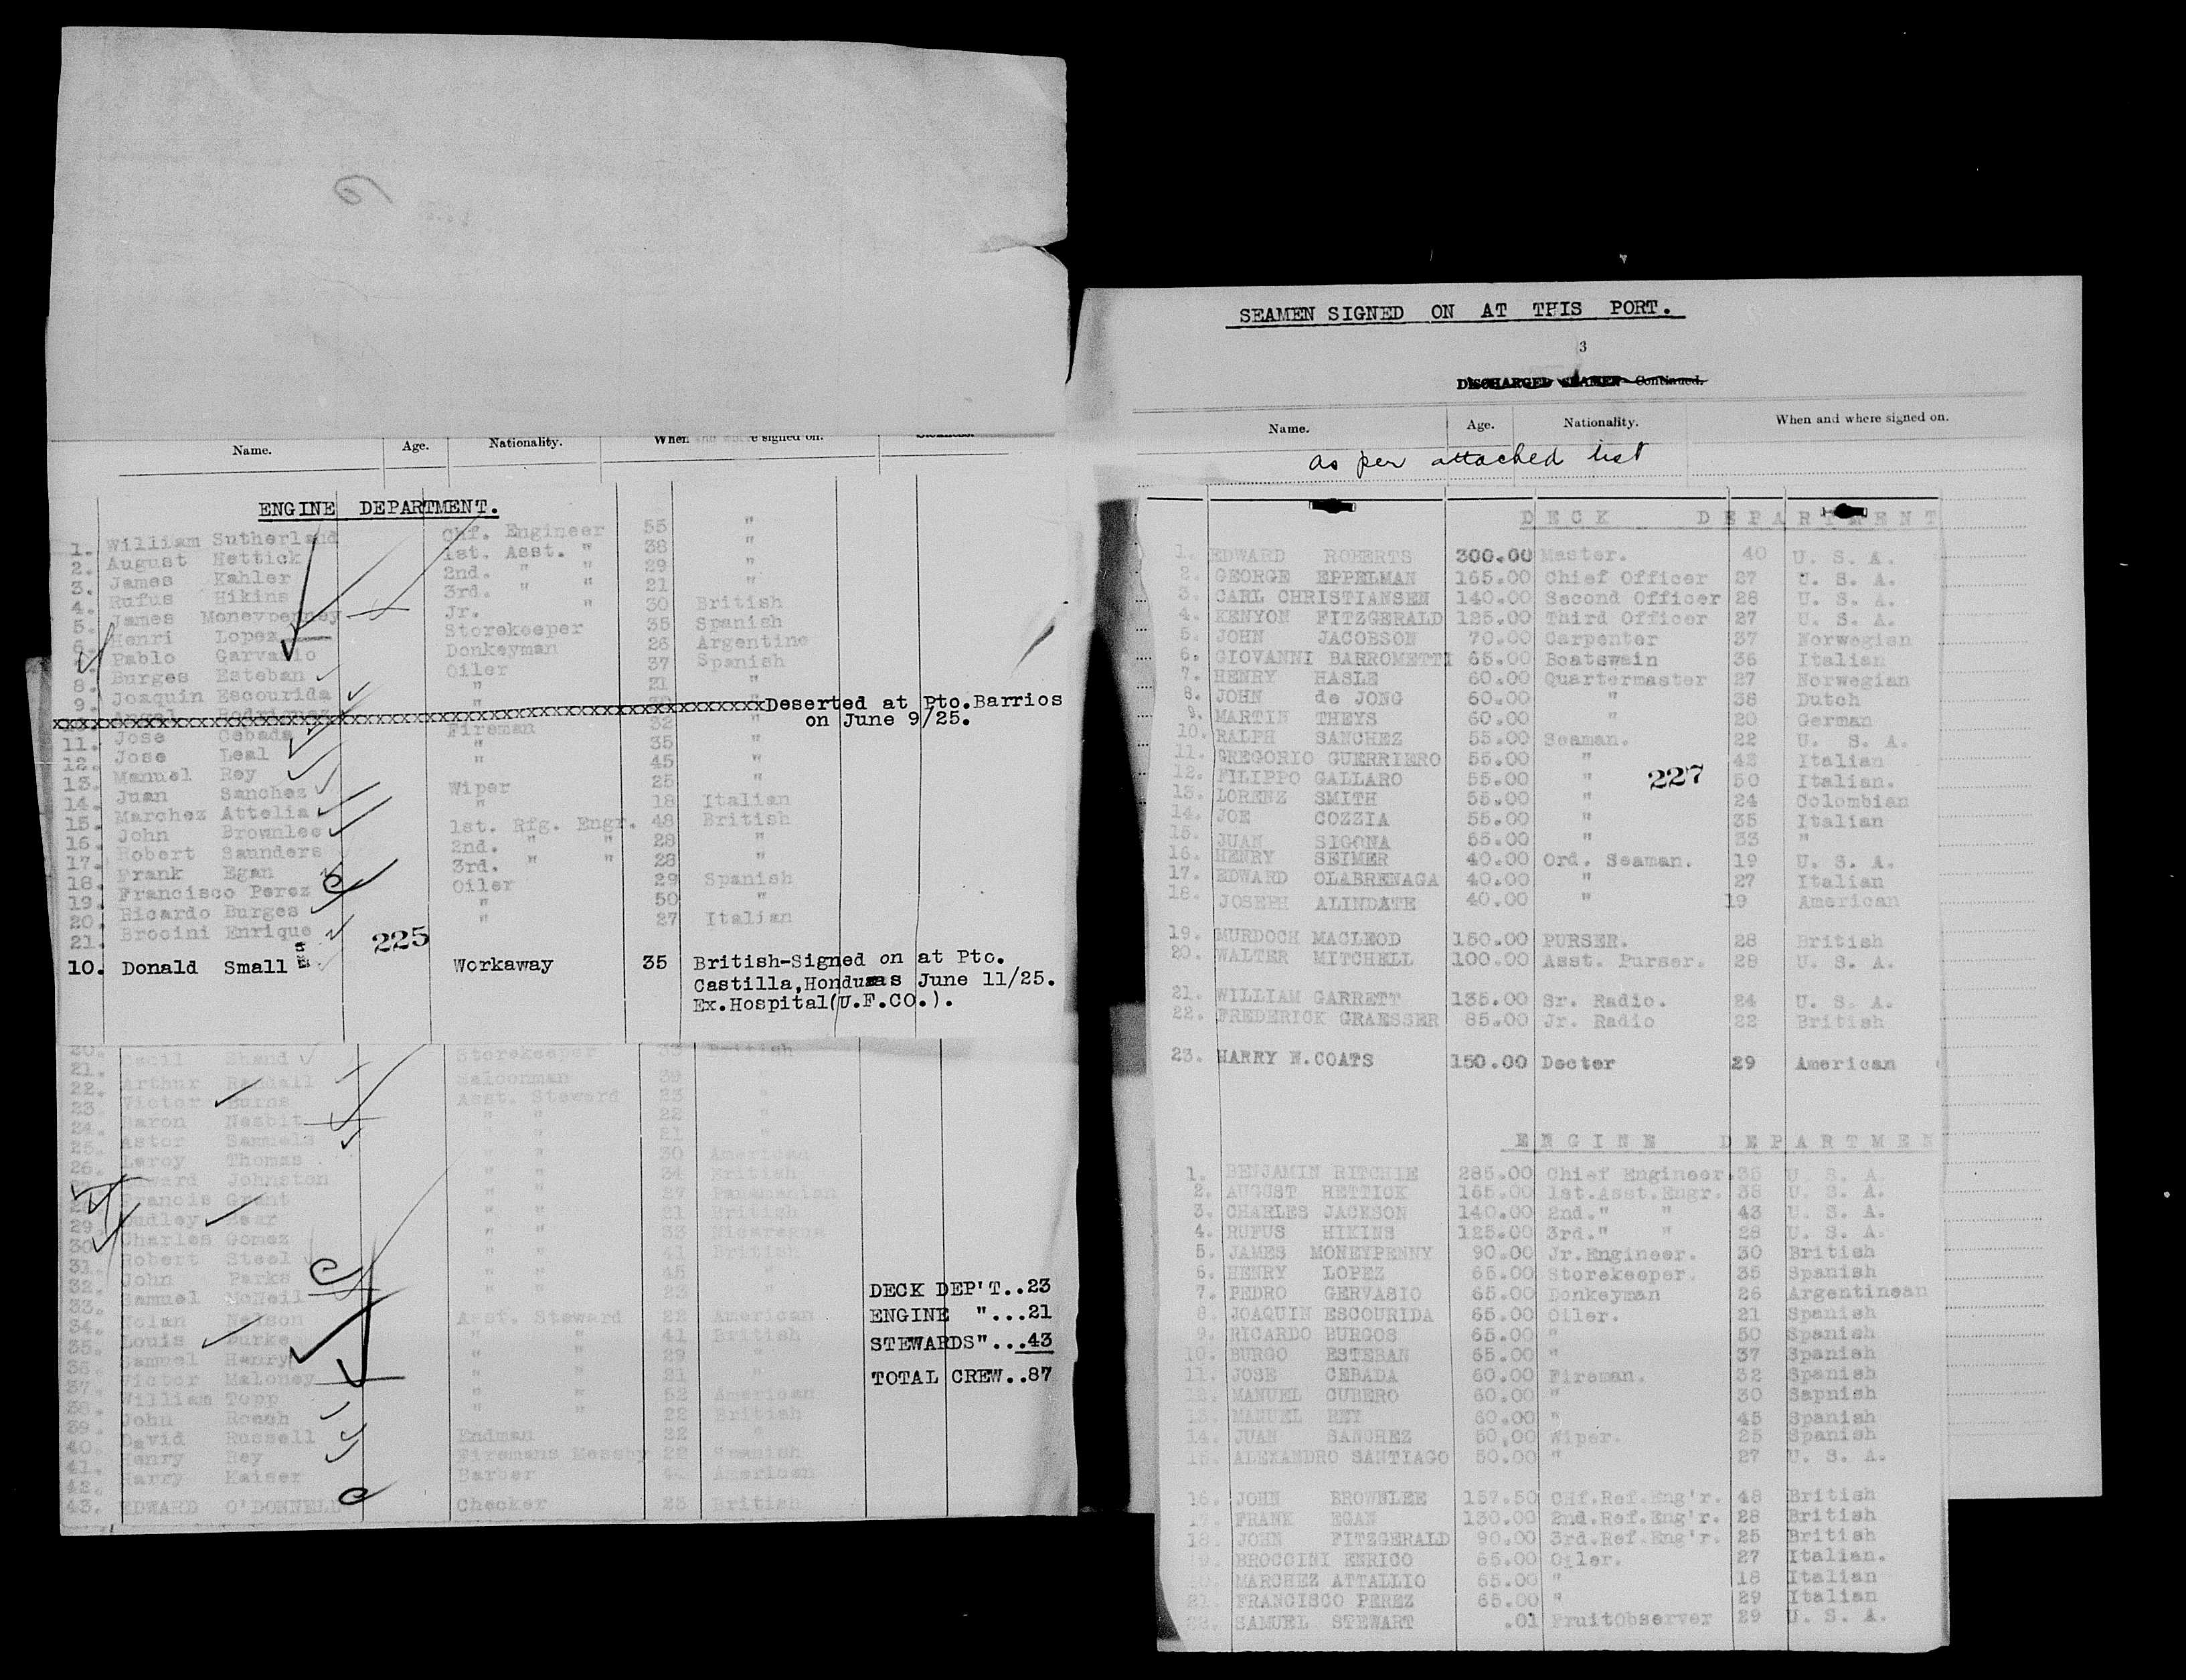 Name. Age. Nationality. When and where signed on.
ENGINE DEPARTMENT.
1. William Sutherland Chf. Engineer 55 "
2. August Hettick 1st. Asst. " 38 "
3. James Kahler 2nd. " " 29 "
4. Rufus Hikins 3rd. " " 21 "
5. James Moneypenney Jr. " 30 British
6. Henri Lopez Storekeeper 35 Spanish
7. Pablo Garvasio Donkeyman 26 Argentine
8. Burges Esteban Oiler 37 Spanish
9. Joaquin Escourida " 21 "
xxxxxxxxxxxxxxxxxxxxxxxx Deserted at Pto.Barrios
on June 9/25.
11. Jose Cebada Fireman 32 "
12. Jose Leal " 35 "
13. Manuel Rey " 45 "
14. Juan Sanchez Wiper 25 "
15. Marchez Attelia " 18 Italian
16. John Brownlee 1st. Rfg. Engr. 48 British
17. Robert Saunders 2nd. " " 28 "
18. Frank Egan 3rd. " " 28 "
19. Francisco Perez Oiler 29 Spanish
20. Ricardo Burges " 50 "
21. Brocini Enrique " 27 Italian
225
10. Donald Small Workaway 35 British-Signed on at Pto.
Castilla,Honduras June 11/25.
Ex.Hospital(U.F.CO.).
Cecil Shand Storekeeper 33 British
Arthur Randall Saloonman 39 "
Victor Burns Asst. Steward 23 "
Baron Nesbit " " 22 "
Astor Samuels " " 21 "
Leroy Thomas " " 30 American
Edward Johnston " " 34 British
Francis Grant " " 27 Panamanian
Dudley Bear " " 21 British
Charles Gomez " " 33 Nicaragua
Robert Steel " " 41 British
John Parks " " 45 "
Samuel McNeil " " 23 "
Nolan Nelson Asst. Steward 22 American
Louis Burke " " 41 British
Samuel Henry " " 29 "
Victor Maloney " " 21 "
William Topp " " 52 American
John Roach " " 22 British
David Russell Endman 32 "
Henry Rey Firemans Messby 22 Spanish
Harry Kaiser Barber 44 American
43. EDWARD O'DONNELL Checker 25 British
DECK DEP'T..23
ENGINE "...21
STEWARDS"...43
TOTAL CREW..87
SEAMEN SIGNED ON AT THIS PORT.
3
DISCHARGED SEAMEN—Continued.
Name. Age. Nationality. When and where signed on.
as per attached list
DECK DEPARTMENT
1. EDWARD ROBERTS 300.00 Master. 40 U. S. A.
2. GEORGE EPPELMAN 165.00 Chief Officer 27 U. S. A.
3. CARL CHRISTIANSEN 140.00 Second Officer 28 U. S. A.
4. KENYON FITZGERALD 125.00 Third Officer 27 U. S. A.
5. JOHN JACOBSON 70.00 Carpenter 37 Norwegian
6. GIOVANNI BARROMETTI 65.00 Boatswain 36 Italian
7. HENRY HASLE 60.00 Quartermaster 27 Norwegian
8. JOHN de JONG 60.00 " 38 Dutch
9. MARTIN THEYS 60.00 " 20 German
10. RALPH SANCHEZ 55.00 Seaman. 22 U. S. A.
11. GREGORIO GUERRIERO 55.00 " 43 Italian
12. FILIPPO GALLARO 55.00 " 227 50 Italian.
13. LORENZ SMITH 55.00 " 24 Colombian
14. JOE COZZIA 55.00 " 35 Italian
15. JUAN SIGONA 55.00 " 33 "
16. HENRY SEIMER 40.00 Ord. Seaman. 19 U. S. A.
17. EDWARD OLABRENAGA 40.00 " 27 Italian
18. JOSEPH ALINDATE 40.00 " 19 American
19. MURDOCH MACLEOD 150.00 PURSER. 28 British
20. WALTER MITCHELL 100.00 Asst. Purser. 28 U. S. A.
21. WILLIAM GARRETT 135.00 Sr. Radio. 24 U. S. A.
22. FREDERICK GRAESSER 85.00 Jr. Radio 22 British
23. HARRY N.COATS 150.00 Doctor 29 American
ENGINE DEPARTMEN
1. BENJAMIN RITCHIE 285.00 Chief Engineer. 35 U S. A.
2. AUGUST HETTICK 165.00 1st.Asst.Engr. 38 U. S. A.
3. CHARLES JACKSON 140.00 2nd." " 43 U. S. A.
4. RUFUS HIKINS 125.00 3rd." " 28 U. S. A.
5. JAMES MONEYPENNY 90.00 Jr.Engineer. 30 British
6. HENRY LOPEZ 65.00 Storekeeper. 35 Spanish
7. PEDRO GERVASIO 65.00 Donkeyman 26 Argentinean
8. JOAQUIN ESCOURIDA 65.00 Oiler. 21 Spanish
9. RICARDO BURGOS 65.00 " 50 Spanish
10. BURGO ESTEBAN 65.00 " 37 Spanish
11. JOSE CEBADA 60.00 Fireman. 32 Spanish
12. MANUEL CUBERO 60.00 " 30 Sapnish
13. MANUEL REY 60.00 " 45 Spanish
14. JUAN SANCHEZ 50,00 Wiper. 25 Spanish
15. ALEXANDRO SANTIAGO 50.00 " 27 U. S. A.
16. JOHN BROWNLEE 157.50 CHf.Ref.Eng'r. 48 British
17. FRANK EGAN 130.00 2nd.Ref.Eng'r. 28 British
18. JOHN FITZGERALD 90.00 3rd.Ref.Eng'r. 25 British
19. BROCCINI ENRICO 65.00 Oiler. 27 Italian.
20. MARCHEZ ATTALLIO 65.00 " 18 Italian
21. FRANCISCO PEREZ 65.00 " 29 Italian
22. SAMUEL STEWART .01 FruitObserver 29 U. S. A.